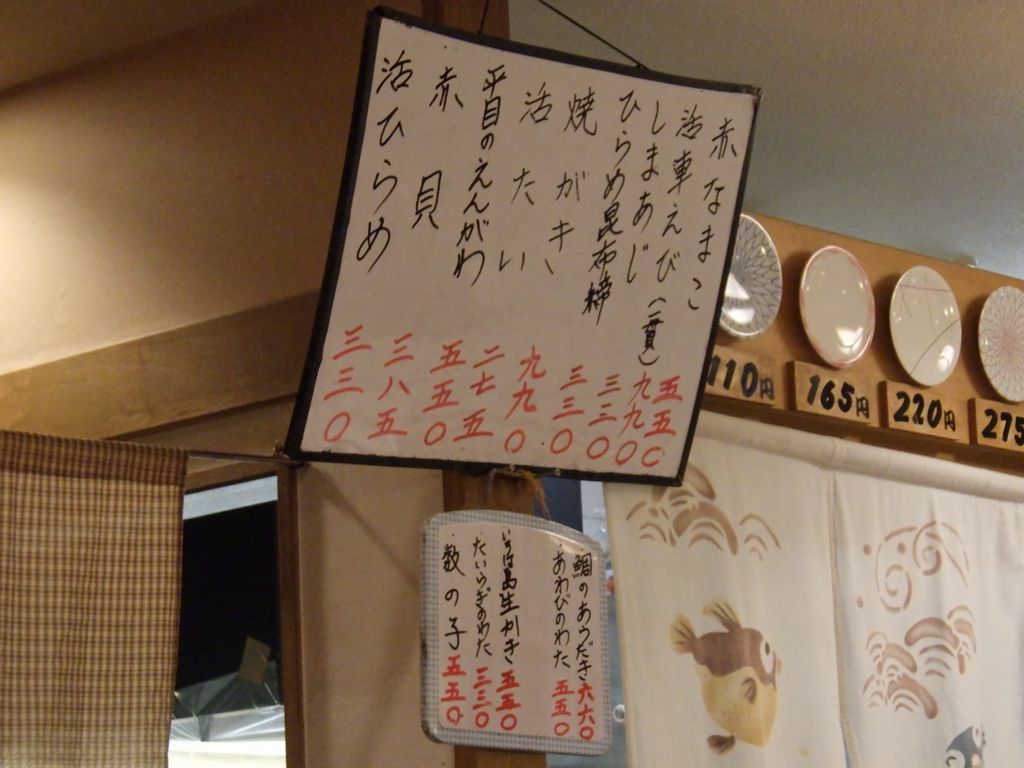 赤なまこ 五五〇
活車えび(一貫) 九九〇
しまあじ 三三〇
ひらめ昆布締 三三〇
焼がき 九九〇
活たい 二七五
平目のえんがわ 五五〇
赤貝 三八五
活ひらめ 三三〇
110円
165円
220円
275
鯛のあらだき 六六〇
あわびのわた 五五〇
いろは島生かき 五五〇
たいらぎのわた 三三〇
数の子 五五〇